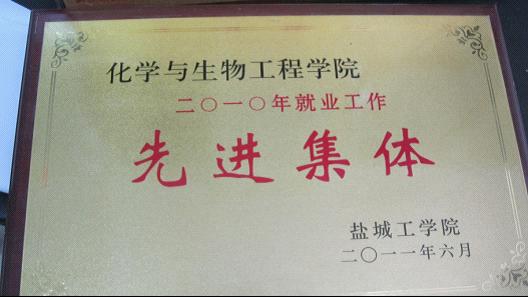 化学与生物工程学院
二〇一〇年就业工作
先进集体
盐城工学院
二〇一一年六月